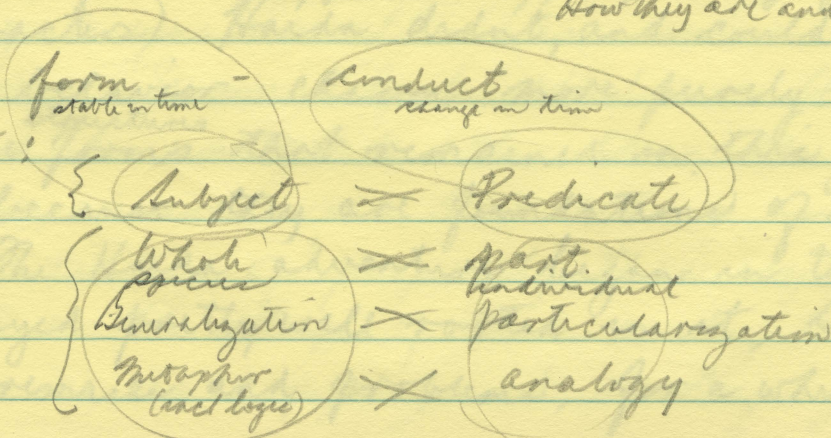 How they are and
form - conduct
stable in time change in time
Subject Predicate
Whole part
species individual
Generalization particularization
Metaphor analogy
(incl logic)